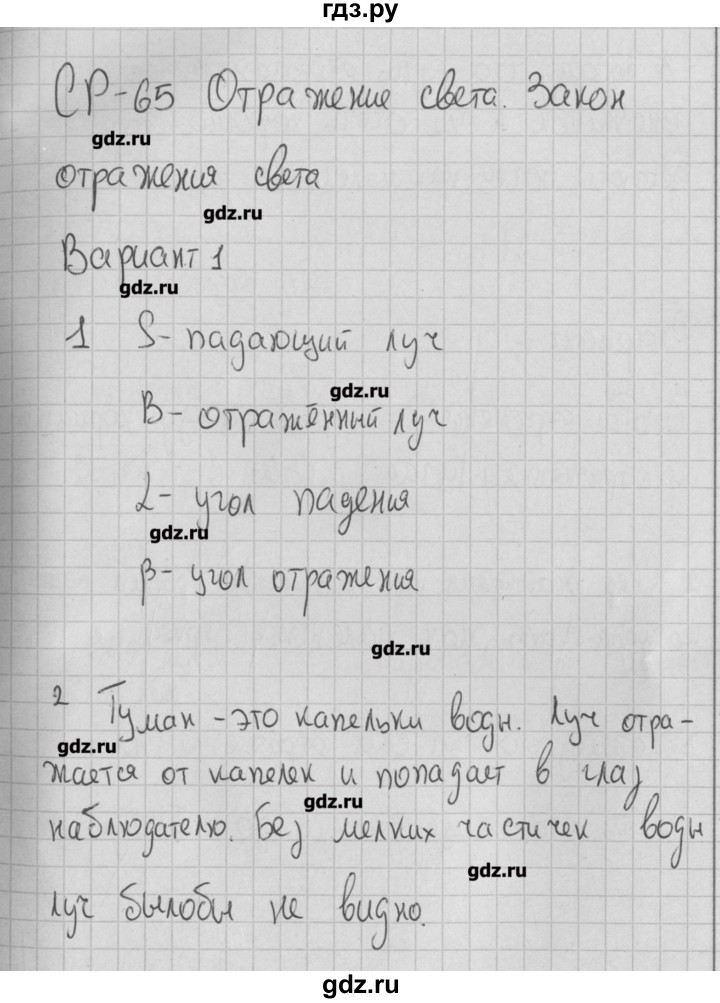 гдз.ру
СР-65 Отражение света. Закон
gdz.ru
отражения света
gdz.ru
Вариант 1
gdz.ru
1 S- падающий луч
gdz.ru
B- отражённый луч
α- угол падения
gdz.ru
β- угол отражения
gdz.ru
2 Туман - это капельки воды. Луч отра-
gdz.ru
жается от капелек и попадает в глаз
gdz.ru
наблюдателю. Без мелких частичек воды
gdz.ru
луч былобы не видно.
gdz.ru